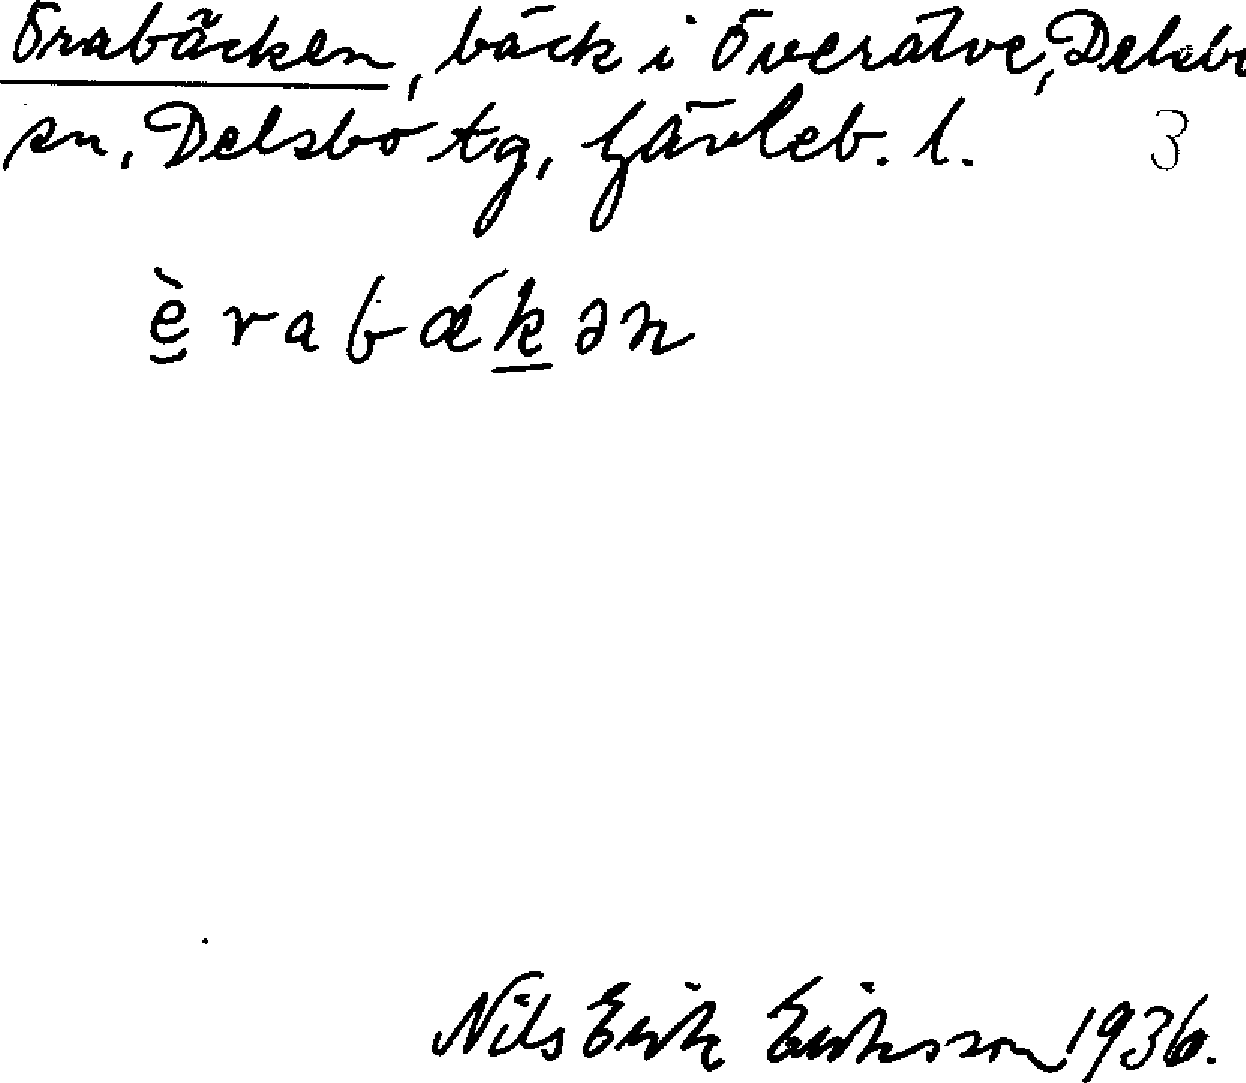 Örabäcken, bäck i Överälve, Delsbo
sn, Delsbo tg, Gävleb. l. 3
è̮ r a b ǽ k̲ ə n
Nils Erik Eriksson 1936.